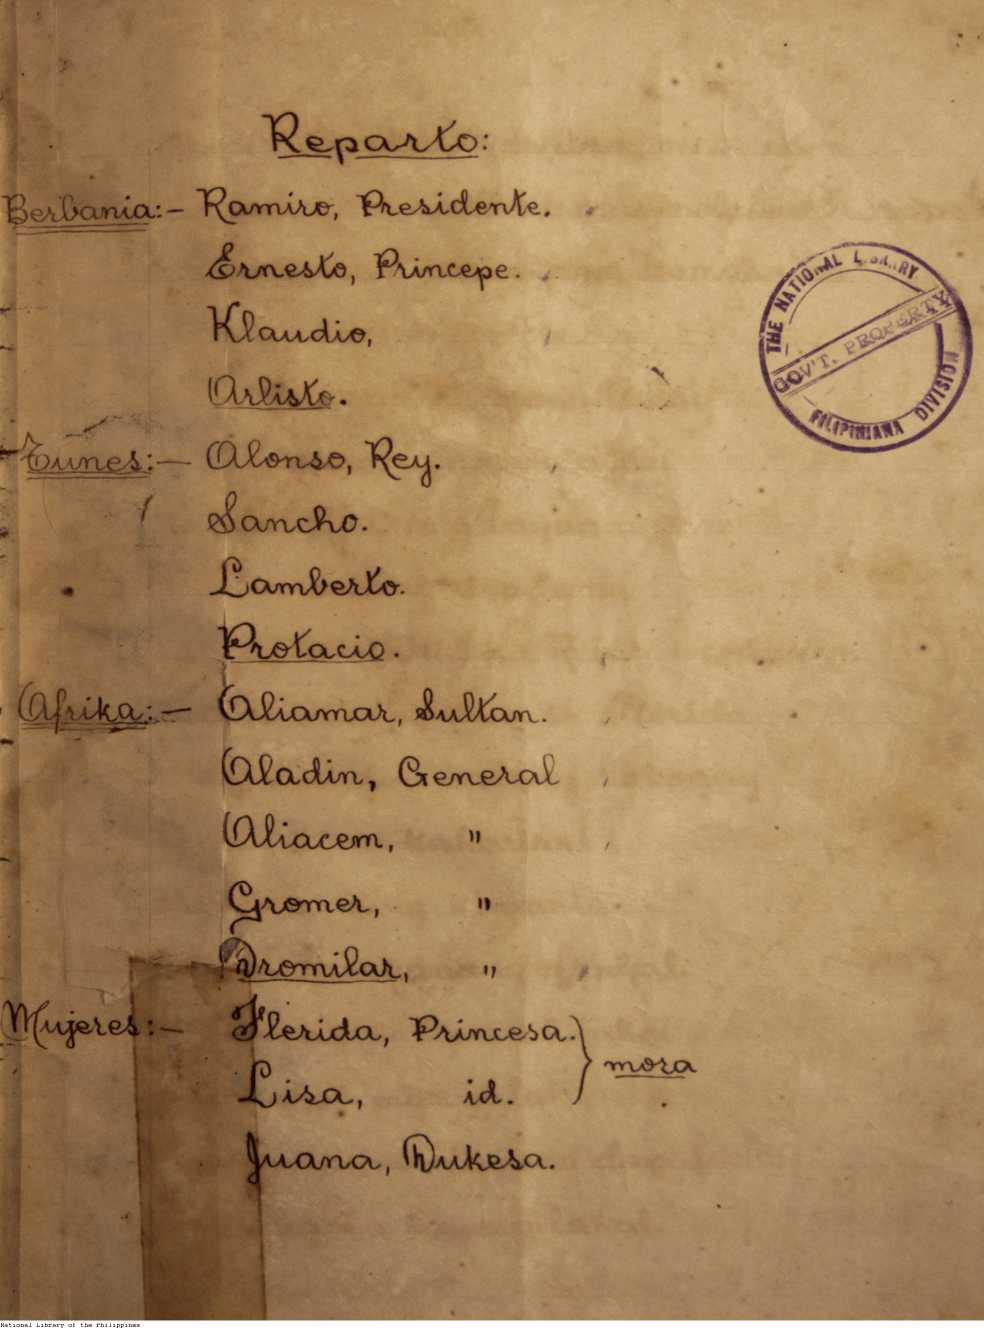 Reparto:
Berbania:- Ramiro, Presidente.
Ernesto, Princepe.
Klaudio,
Arlisto.
Tunes:- Alonso, Rey.
Sancho.
Lamberto.
Protacio.
Afrika:- Aliamar, Sultan.
Aladin, General
Aliacem, "
Gromer, "
Dromilar, "
Mujeres:- Flerida, Princesa.
mora
Lisa, id.
Juana, Dukesa.
THE NATIONAL LIBRARY
GOV'T. PROPERTY
FILIPINIANA DIVISION
National Library of the Philippines